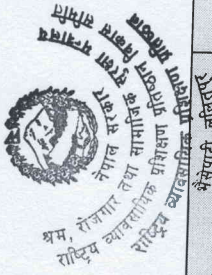 नेपाल सरकार
श्रम, रोजगार तथा सामाजिक सुरक्षा मन्त्रालय
राष्ट्रिय व्यावसायिक प्रशिक्षण प्रतिष्ठान विकास समिति
राष्ट्रिय व्यावसायिक प्रशिक्षण प्रतिष्ठान
भैंसेपाटी, ललितपुर